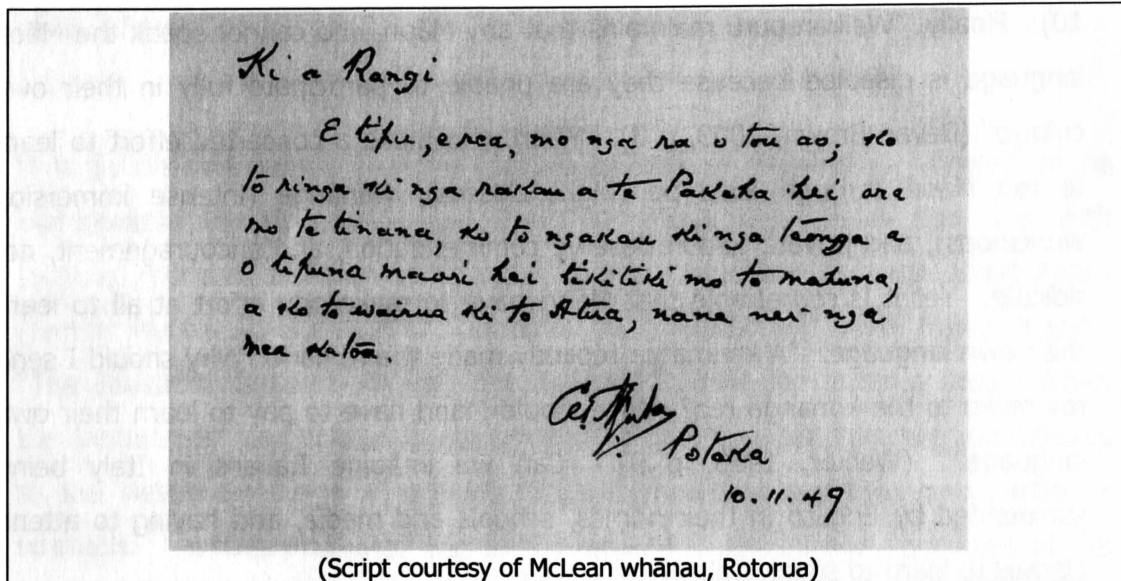 Ki a Rangi
E tipu, e rea, mo nga ra o tou ao; ko
to ringa ki nga rakau a te Pakeha hei ora
mo te tinana, ko to ngakau ki nga taonga a
o tipuna maori hei tikitiki mo to mahuna,
a ko to wairua ki to Atua, nana nei nga
mea katoa
Potaka
10.11.49
(Script courtesy of McLean whānau, Rotorua)